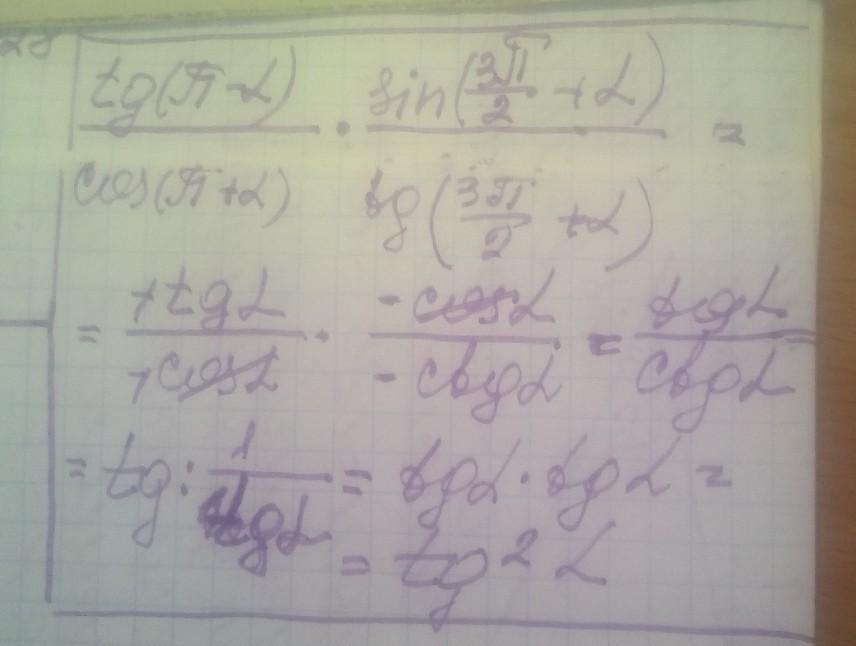 28
tg(π-α)/cos(π+α) · sin(3π/2 +α)/tg(3π/2 +α) =
= +tgα/+cosα · -cosα/-ctgα = tgα/ctgα
= tg : 1/tgα = tgα · tgα =
= tg² α